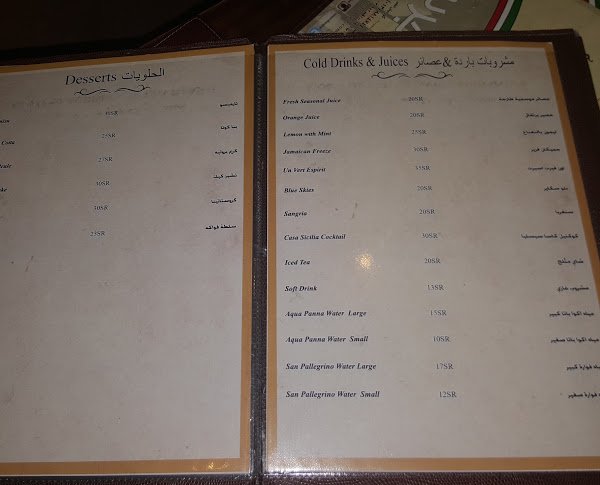 Desserts الحلويات
30SR تايميسو
Cotta 25SR بنا كوتا
25SR كرم
30SR تشيز كيك
30SR
25SR سلطة فواكه
Cold Drinks & Juices مشروبات باردة & عصائر
Fresh Seasonal Juice 20SR عصائر موسمية طازجة
Orange Juice 20SR عصير برتقال
Lemon with Mint 25SR ليمون بالنعناع
Jamaican Freeze 30SR جميكان فريز
Un Vert Espirit 35SR
Blue Skies 20SR بلو سكايز
Sangria 20SR سنغريا
Casa Sicilia Cocktail 30SR كوكتيل كاسا سيسيليا
Iced Tea 20SR شاي مثلج
Soft Drink 13SR مشروب غازي
Aqua Panna Water Large 15SR مياه اكوا بانا كبير
Aqua Panna Water Small 10SR مياه اكوا بانا صغير
San Pallegrino Water Large 17SR فوارة كبير
San Pallegrino Water Small 12SR فوارة صغير